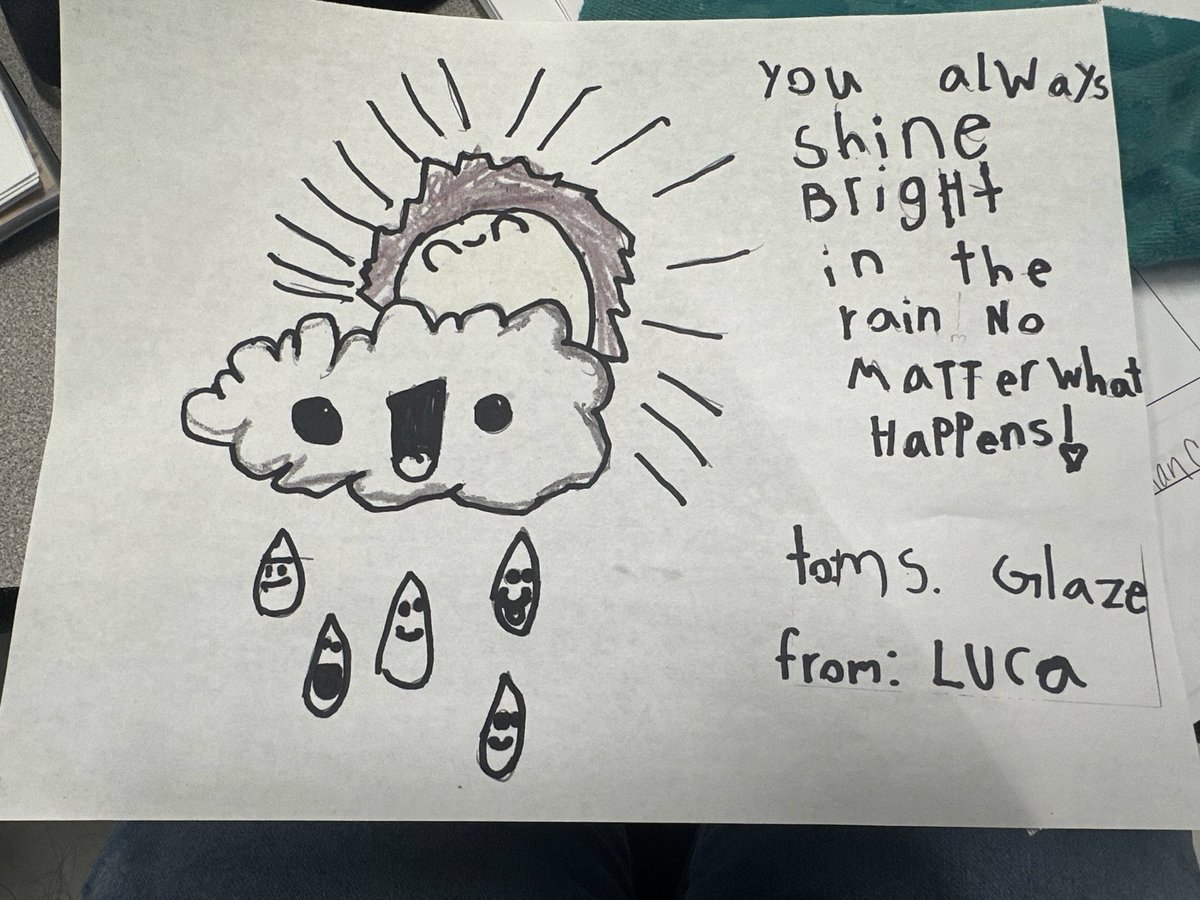 You always
shine
BrigHt
in the
rain No
MaTTer what
HaPPens!
to: Ms. Glaze
from: LUCa